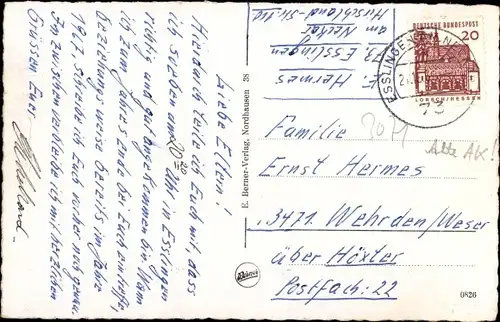 Liebe Eltern!
Hierdurch teile ich Euch mit, dass
ich soeben um 20²⁰ Uhr in Esslingen
richtig und gut angekommen bin. Wann
ich zum Jahresende bei Euch eintreffe,
beziehungsweise bereits im Jahre
1967, schreibe ich Euch vorher noch genau.
Inzwischen verbleibe ich mit herzlichen
Grüssen Euer
E. Berner-Verlag, Nordhausen 38
E. Hermes
73 Esslingen
am Neckar
DEUTSCHE BUNDESPOST
20
LORSCH/HESSEN
ESSLINGEN
73
Alte AK!
Familie
Ernst Hermes
3471 Wehrden/Weser
über Höxter
Postfach: 22
0826